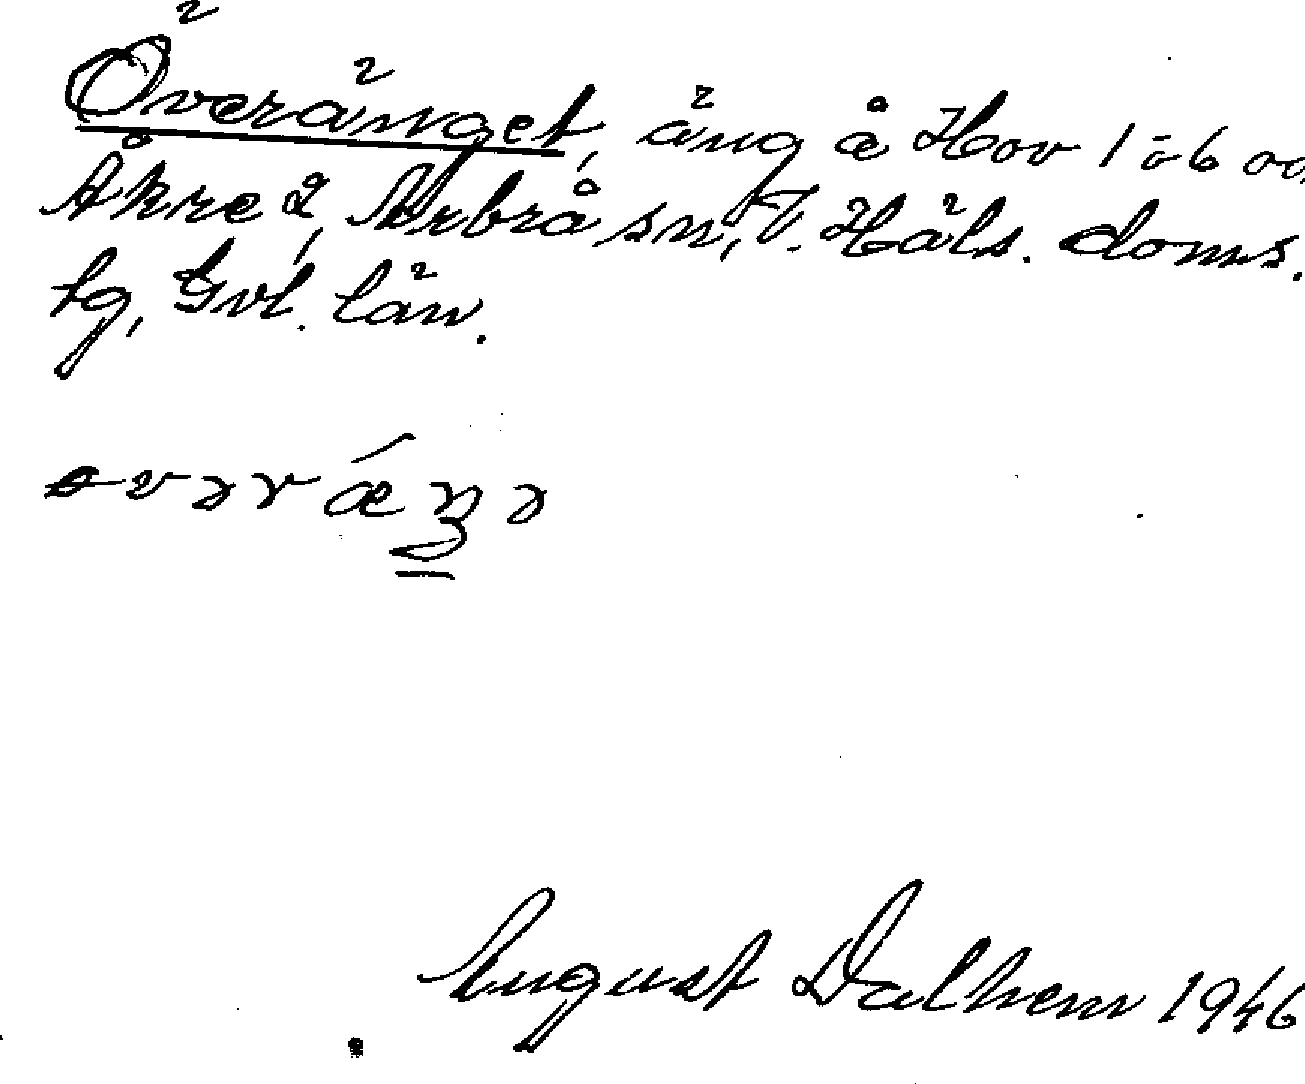 Överänget, äng å Hov 1 o 6 och
Åkre 2, Arbrå sn, V. Häls. doms.
tg, Gvl. län.
August Dalhem 1946